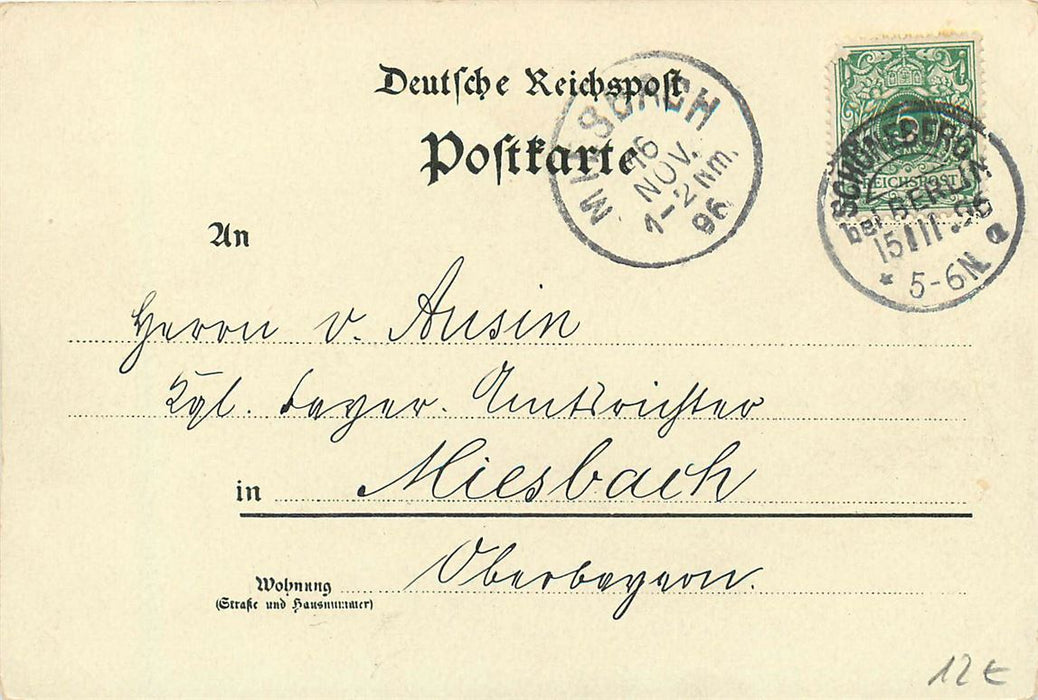 Deutsche Reichspost
Postkarte
MIESBACH
16
NOV.
1-2 Nm.
96
5
REICHSPOST
SCHÖNEBERG
bei BERLIN
15 11.96
* 5-6N a
An
Herrn v. Ausin
Kgl. bayer. Amtsrichter
in Miesbach
Oberbayern.
Wohnung
(Straße und Hausnummer)
12 €